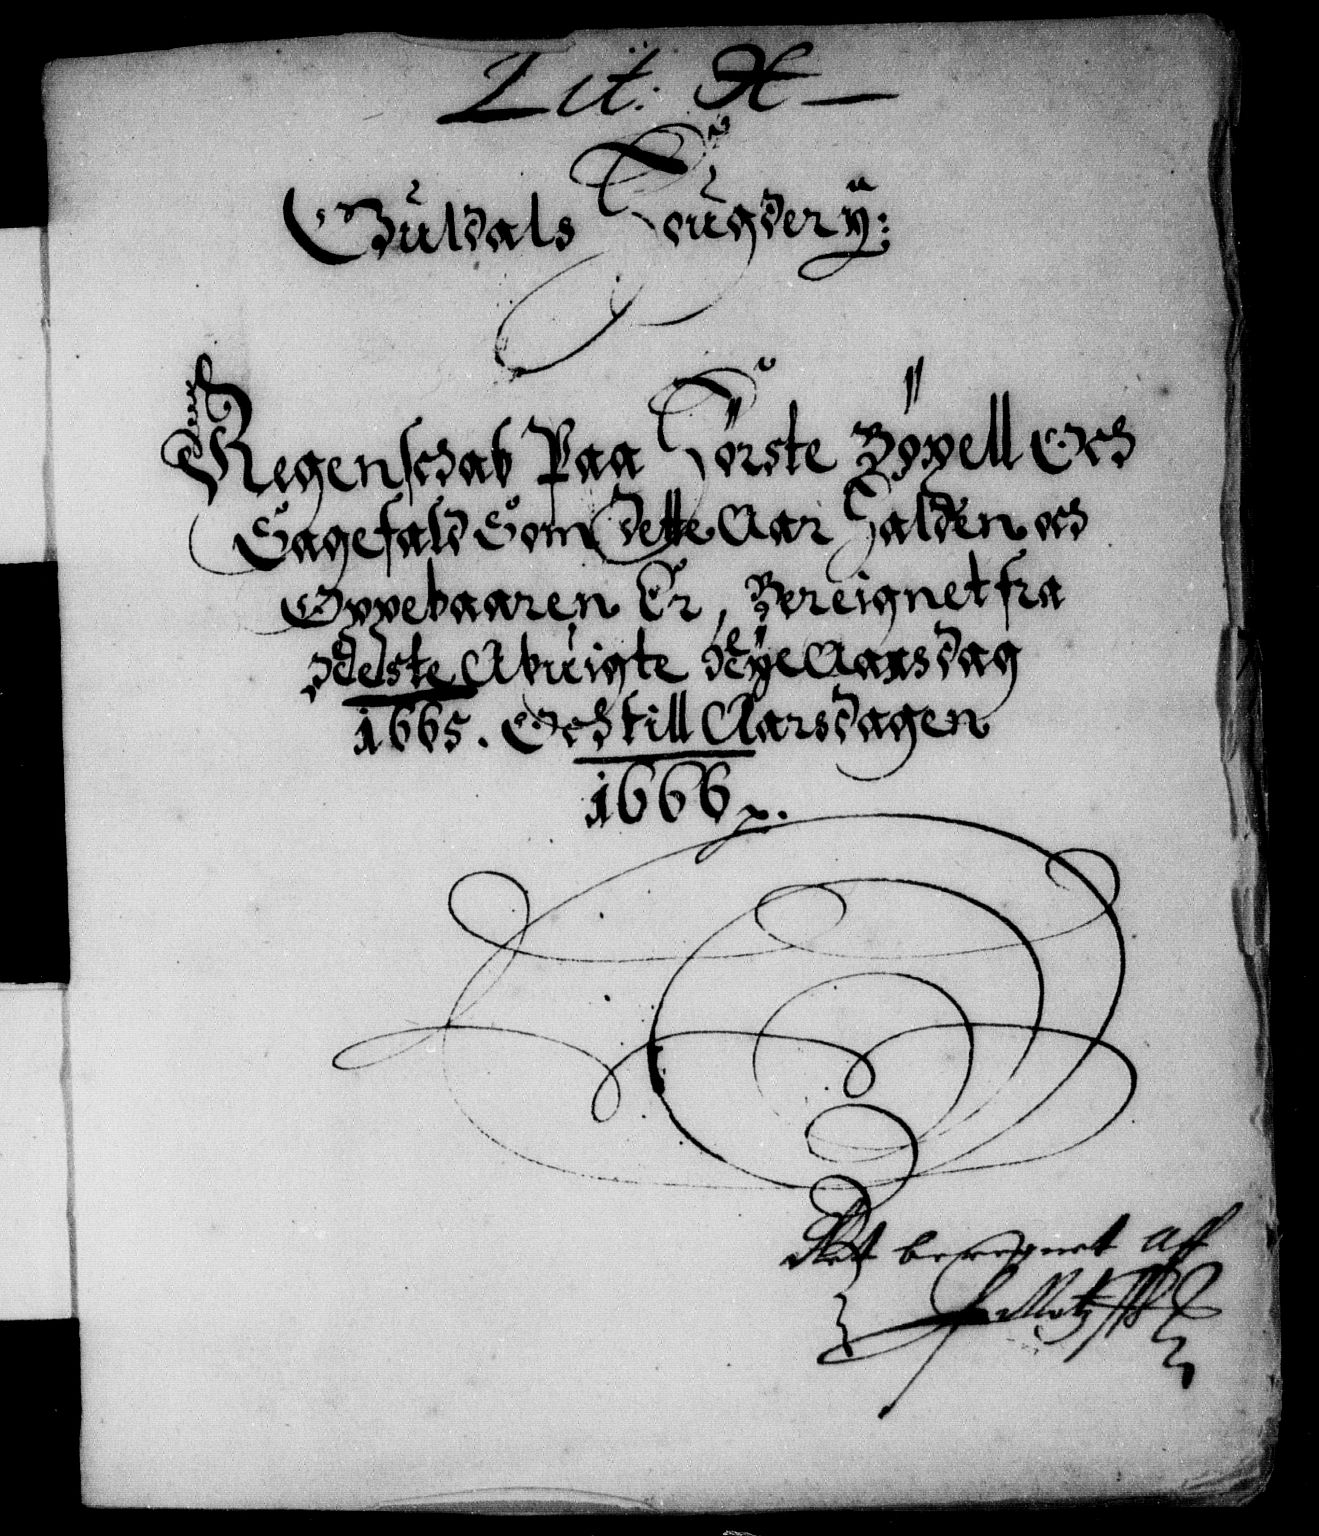 Lit: H
Guldals Fougderÿ:
Regenschab Paa Förste Böxell Och
Sagefald Som dette Aar falden och
Oppebaaren Er, Bereignet fra
Neste Abuigte Neÿe Aars dag
1665. Och till Aarsdagen
1666
beregnet aff